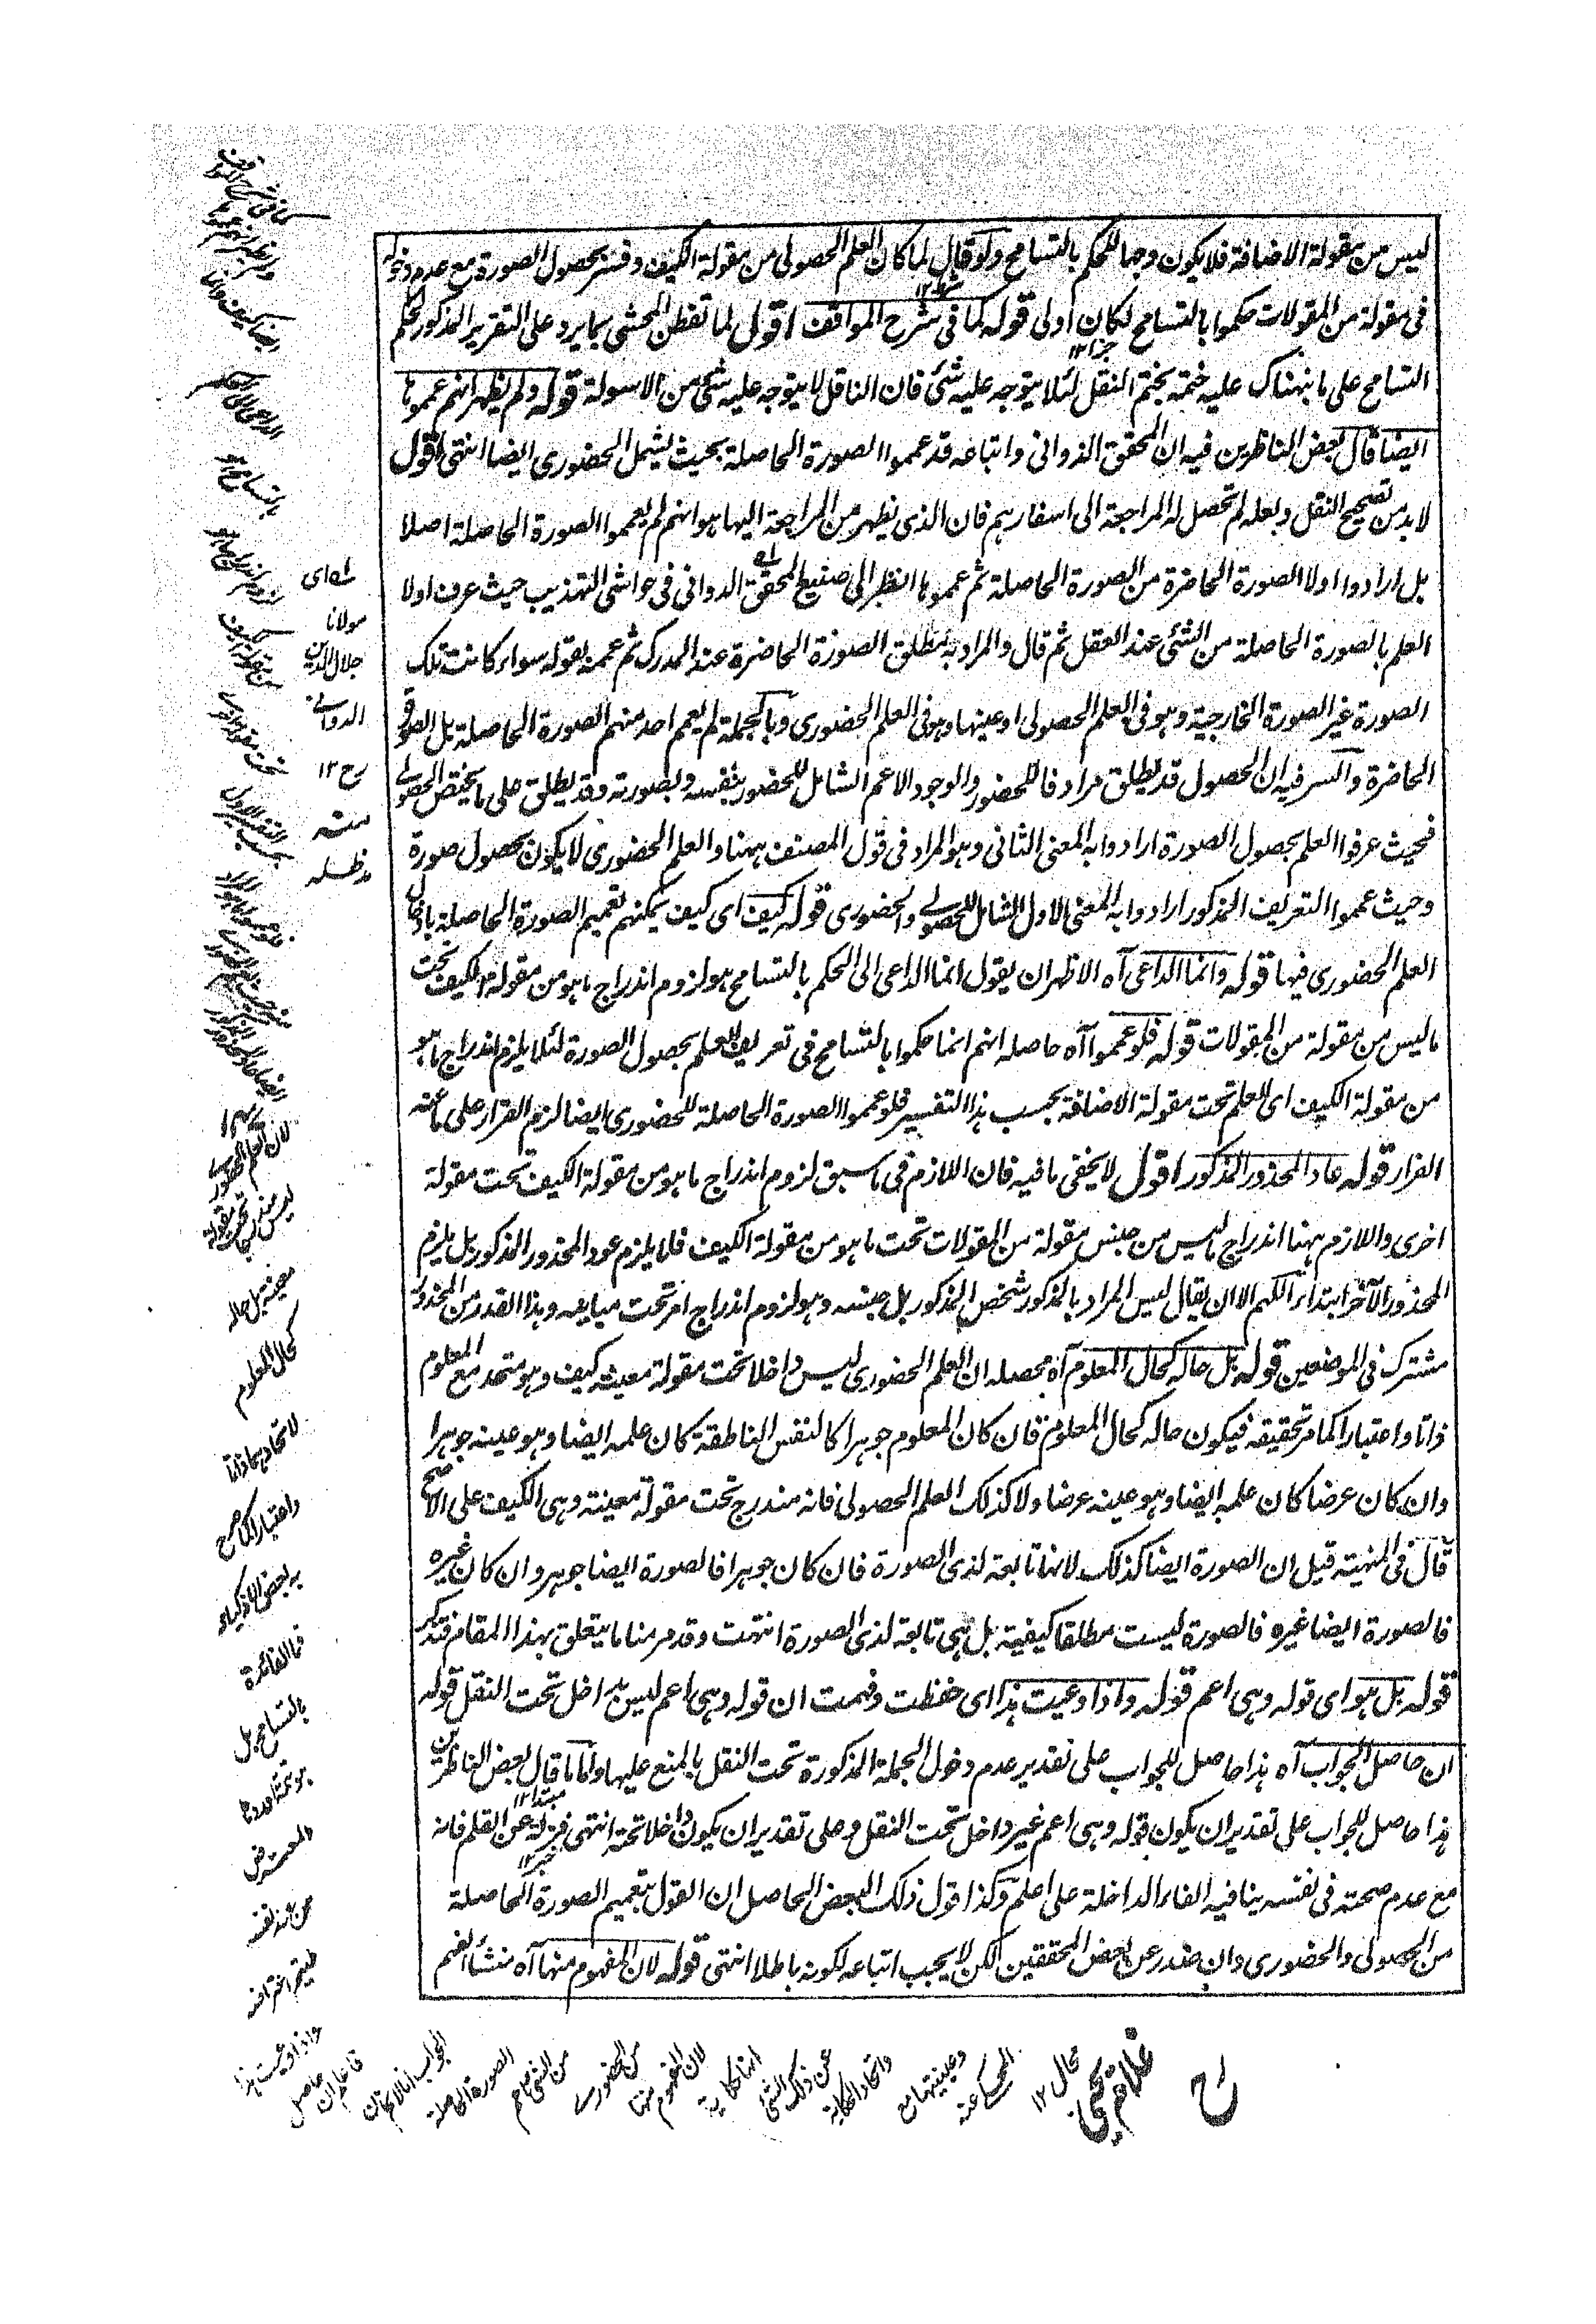 ليس من مقولة الاضافة فلا يكون وجها للحكم بالتسامح ولو قال لما كان العلم الحصولى من مقولة الكيف وفسر بحصول الصورة مع عدم دخوله
فى مقولة من المقولات حكموا بالتسامح لكان اولى قوله كما فى شرح المواقف اقول لما تفطن المحشى بما يرد على التقرير المذكور لحكم
التسامح على ما نبهناك عليه ختمه بختم النقل لئلا يتوجه عليه شئ فان الناقل لا يتوجه عليه شئ من الاسولة قوله ولم يظهر انهم عمموها
ايضا قال بعض الناظرين فيه ان المحقق الدوانى واتباعه قد عمموا الصورة الحاصلة بحيث يشمل الحضورى ايضا انتهى اقول
لا بد من تصحيح النقل ولعله لم تحصل له المراجعة الى اسفارهم فان الذى يظهر من المراجعة اليها هو انهم لم يعمموا الصورة الحاصلة اصلا
بل ارادوا اولا الصورة الحاضرة من الصورة الحاصلة ثم عمموها انظر الى صنيع المحقق الدوانى فى حواشى التهذيب حيث عرف اولا
العلم بالصورة الحاصلة من الشئ عند العقل ثم قال والمراد به مطلق الصورة الحاضرة عند المدرك ثم عممه بقوله سواء كانت تلك
الصورة غير الصورة الخارجية وهو فى العلم الحصولى او عينها وهو فى العلم الحضورى وبالجملة لم يعمم احد منهم الصورة الحاصلة بل الصورة
الحاضرة والسر فيه ان الحصول قد يطلق مرادفا للحضور والوجود الاعم الشامل للحضور بنفسه وبصورته وقد يطلق على ما يختص الحصولى
فحيث عرفوا العلم بحصول الصورة ارادوا به المعنى الثانى وهو المراد فى قول المصنف ههنا والعلم الحضورى لا يكون بحصول صورة
وحيث عمموا التعريف المذكور ارادوا به المعنى الاول الشامل للحصولى والحضورى قوله كيف اى كيف يمكنهم تعميم الصورة الحاصلة بادخال
العلم الحضورى فيها قوله وانما الداعى آه الاظهر ان يقول انما الداعى الى الحكم بالتسامح هو لزوم اندراج ما هو من مقولة الكيف تحت
ما ليس من مقولة من المقولات قوله فلو عمموا آه حاصله انهم انما حكموا بالتسامح فى تعريف العلم بحصول الصورة لئلا يلزم اندراج ما هو
من مقولة الكيف اى العلم تحت مقولة الاضافة بحسب هذا التفسير فلو عمموا الصورة الحاصلة للحضورى ايضا لزم القرار على ما عنه
الفرار قوله عاد المحذور المذكور اقول لا يخفى ما فيه فان اللازم فى ما سبق لزوم اندراج ما هو من مقولة الكيف تحت مقولة
اخرى واللازم ههنا اندراج ما ليس من جنس مقولة من المقولات تحت ما هو من مقولة الكيف فلا يلزم عود المحذور المذكور بل يلزم
المحذور الآخر ابتداء اللهم الا ان يقال ليس المراد بالمذكور شخص المذكور بل جنسه وهو لزوم اندراج امر تحت مباينه وهذا القدر من المحذور
مشترك فى الموضعين قوله بل حاله كحال المعلوم آه محصله ان العلم الحضورى ليس داخلا تحت مقولة معينة كيف وهو متحد مع المعلوم
ذاتا واعتبارا كما مر تحقيقه فيكون حاله كحال المعلوم فان كان المعلوم جوهرا كالنفس الناطقة كان علمه ايضا وهو عينه جوهرا
وان كان عرضا كان علمه ايضا وهو عينه عرضا ولا كذلك العلم الحصولى فانه مندرج تحت مقولة معينة وهى الكيف على الاصح
قال فى المنهية قيل ان الصورة ايضا كذلك لانها تابعة لذى الصورة فان كان جوهرا فالصورة ايضا جوهر وان كان غيره
فالصورة ايضا غيره فالصورة ليست مطلقا كيفية بل هى تابعة لذى الصورة انتهت وقد مر منا ما يتعلق بهذا المقام فتذكر
قوله بل هو اى قوله وهى اعم قوله واذا وعيت هذا اى حفظت وفهمت ان قوله وهى اعم ليس بداخل تحت النقل قوله
ان حاصل الجواب آه هذا حاصل للجواب على تقدير عدم دخول الجملة المذكورة تحت النقل بالمنع عليها واما ما قال بعض الناظرين
هذا حاصل للجواب على تقدير ان يكون قوله وهى اعم غير داخل تحت النقل وعلى تقدير ان يكون داخلا تحته انتهى فزلة عن القلم فانه
مع عدم صحته فى نفسه ينافيه الفاء الداخلة على اعلم وكذا قول ذلك البعض الحاصل ان القول بتعميم الصورة الحاصلة
من الحصولى والحضورى وان صدر عن بعض المحققين لكن لا يجب اتباعه لكونه باطلا انتهى قوله لان المفهوم منها آه منشأ الفهم
اى
مولانا
جلال الدين
الدوانى
١٢
منه
مد ظله
لان العلم الحضورى
ليس مندرجا
تحت مقولة
معينة بل حاله
كحال المعلوم
لاتحادهما ذاتا
واعتبارا كما صرح
به بعض الاذكياء
فما الفائدة
بالتسامح بل
المعترض
عن نفسه
واذا وعيت هذا
فاعلم ان حاصل
الجواب انا لا نم ان
الصورة الحاصلة
من الشئ اعم
من الحضورى
لان المفهوم منها
انها حكاية
عن ذلك الشئ
واتحاد الحكاية
وعينيتها مع
المحكى عنه
محال ١٢
غلام يحيى